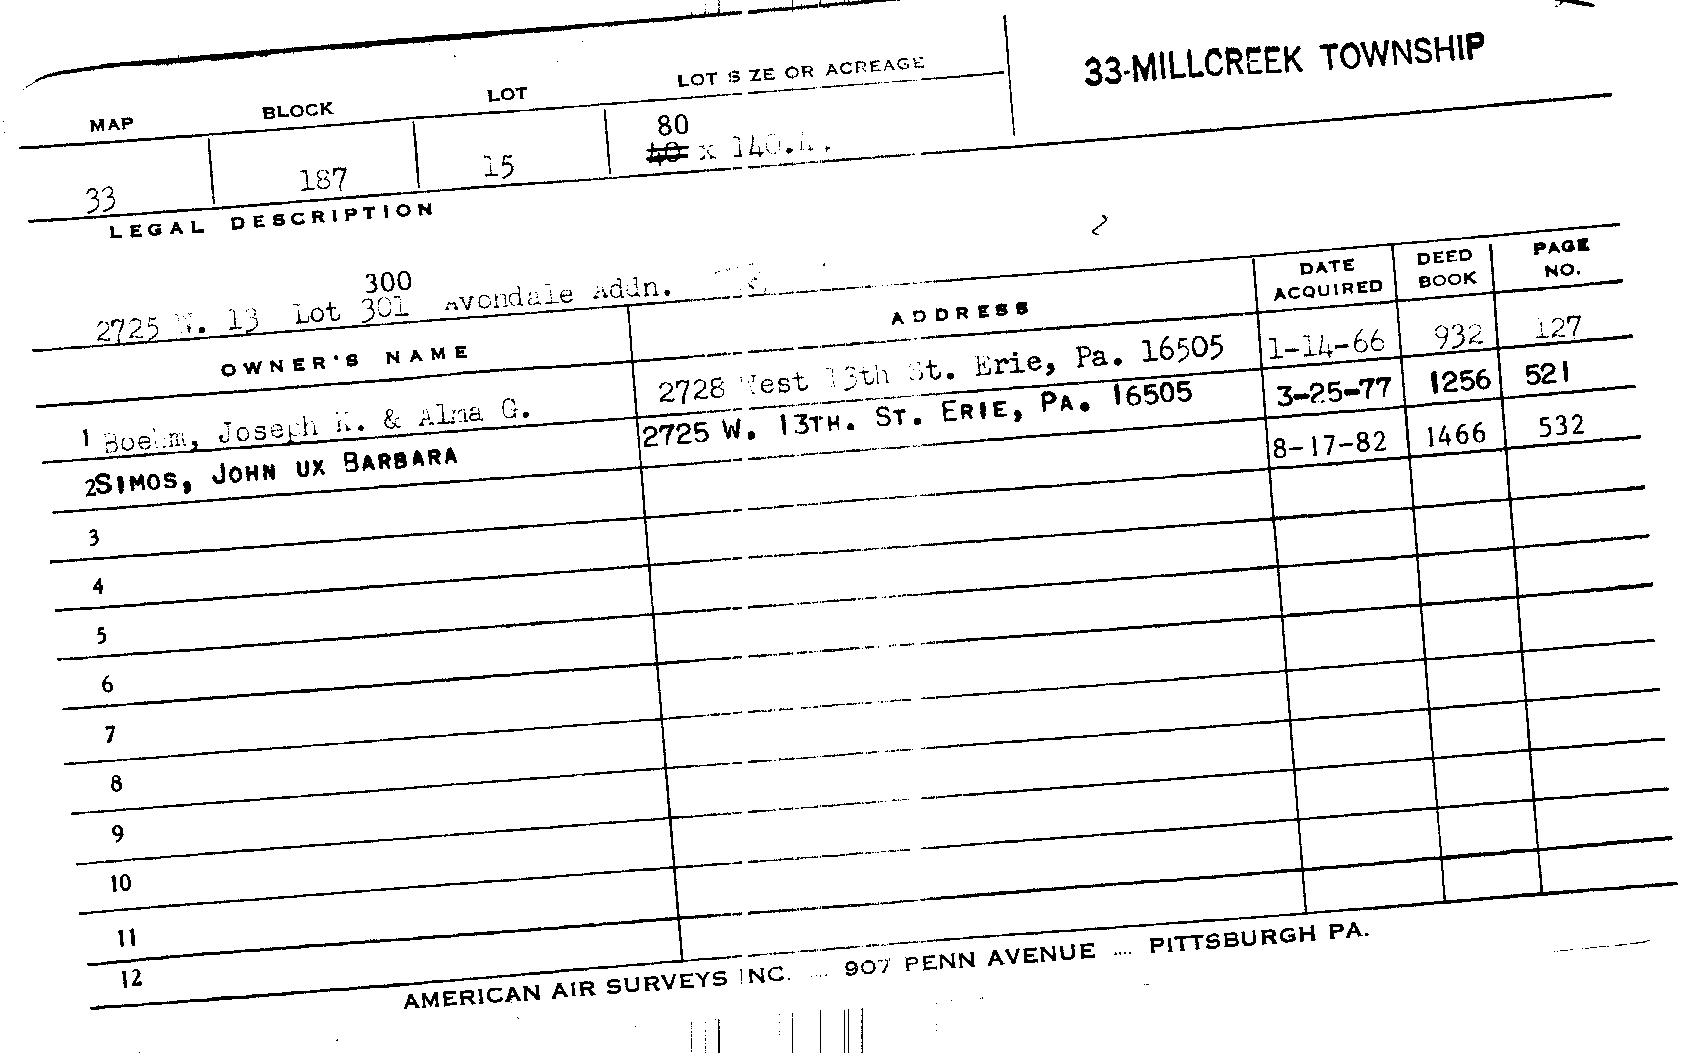 33-MILLCREEK TOWNSHIP
MAP BLOCK LOT LOT SIZE OR ACREAGE
80
33 187 15 40 x 140.4.
LEGAL DESCRIPTION
300
2725 W. 13 Lot 301 Avondale Addn.
OWNER'S NAME ADDRESS DATE ACQUIRED DEED BOOK PAGE NO.
1 Boehm, Joseph K. & Alma G. 2728 West 13th St. Erie, Pa. 16505 1-14-66 932 127
2 SIMOS, JOHN UX BARBARA 2725 W. 13TH. ST. ERIE, PA. 16505 3-25-77 1256 521
8-17-82 1466 532
3
4
5
6
7
8
9
10
11
12
AMERICAN AIR SURVEYS INC. ... 907 PENN AVENUE .... PITTSBURGH PA.